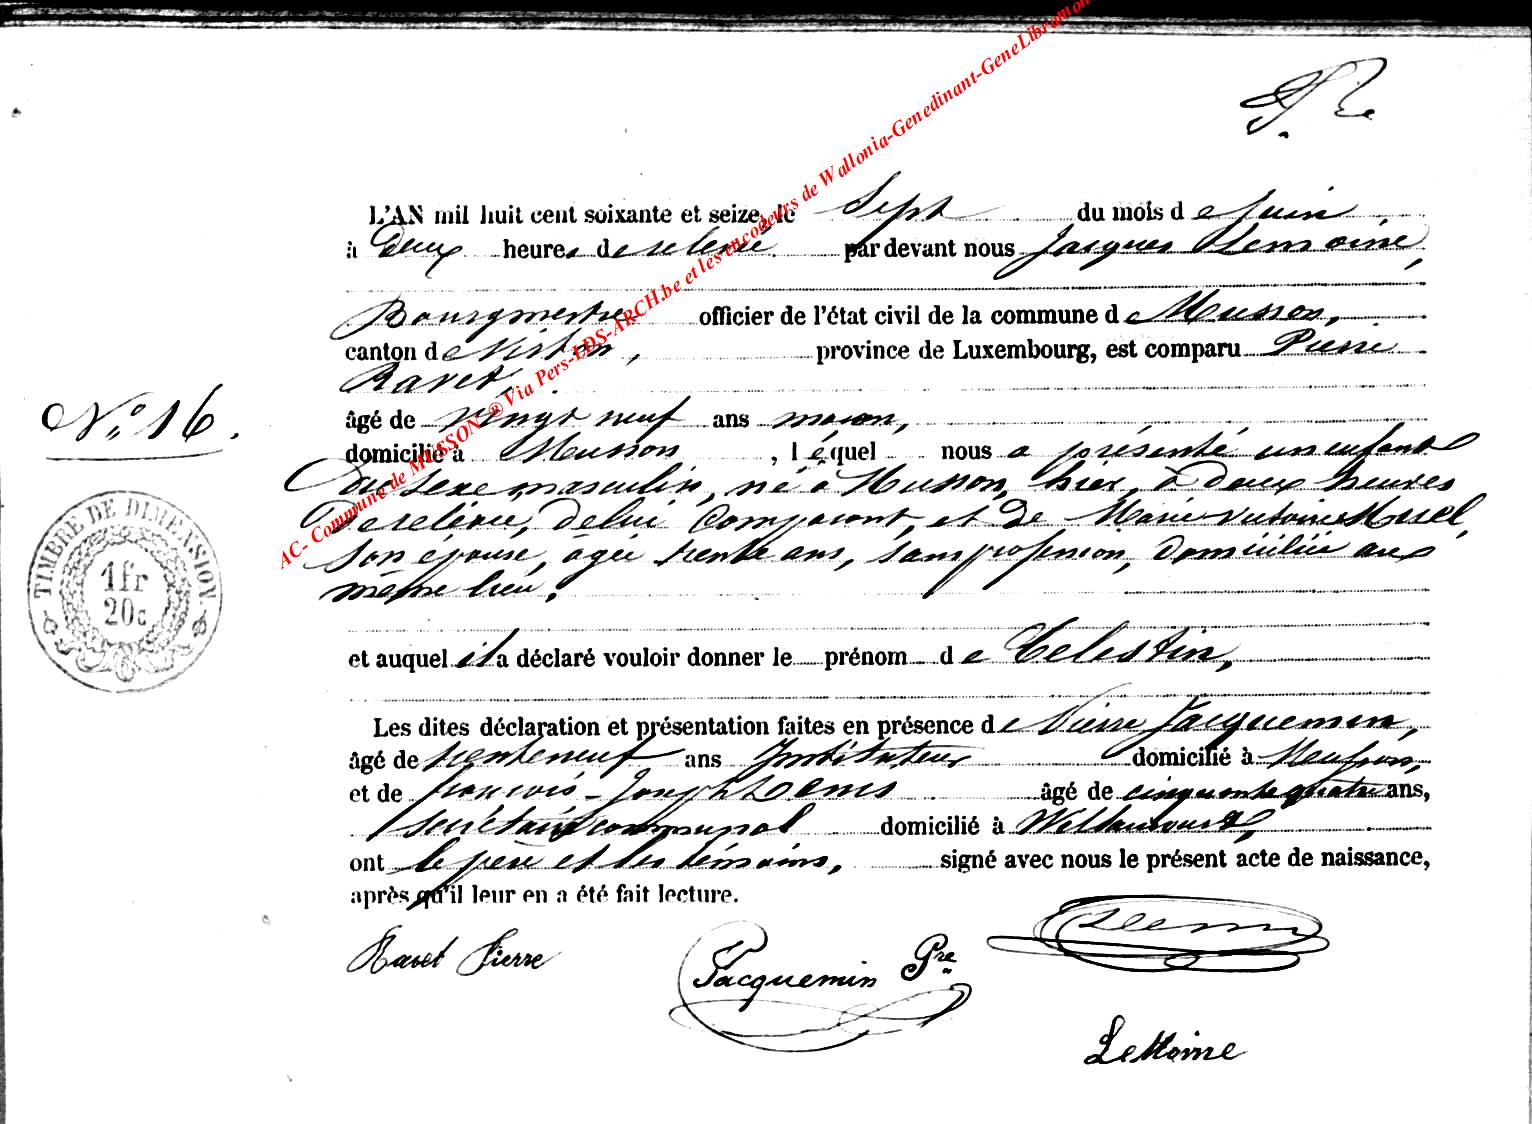 L'AN mil huit cent soixante et seize, le Sept du mois de Juin,
à Deux heures de relevée par devant nous Jacques Lemoine,
Bourgmestre officier de l'état civil de la commune de Musson,
canton de Virton, province de Luxembourg, est comparu Pierre
Ravet,
N° 16.
âgé de vingt neuf ans maçon,
domicilié à Musson, léquel nous a présenté un enfant
du sexe masculin, né à Musson, hier, à Deux heures
De relevée, de lui Comparant, et De Marie Victoire
son épouse, âgée trente ans, sans profession, Domiciliée au
même lieu.
TIMBRE DE DIMENSION.
1fr
20c
et auquel il a déclaré vouloir donner le prénom de Celestin,
Les dites déclaration et présentation faites en présence de Pierre Jacquemin,
âgé de trente neuf ans Instituteur domicilié à Musson,
et de François-Joseph Denis âgé de cinquante quatre ans,
Secrétaire communal domicilié à Willancourt,
ont le père et les témoins, signé avec nous le présent acte de naissance,
après qu'il leur en a été fait lecture.
Ravet Pierre
Jacquemin Pre
Denis
LeMoine
AC- Commune de MUSSON ® Via Pers-LDS-ARCH.be et les encodeurs de Wallonia-Genedinant-GeneLibramon